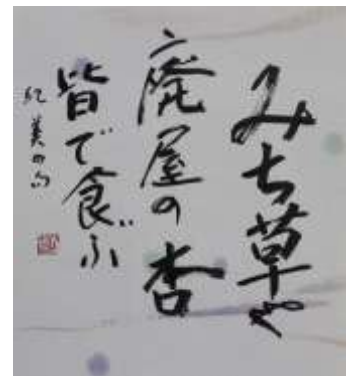 みち草や
廃屋の杏
皆で食ぶ
紀美の句